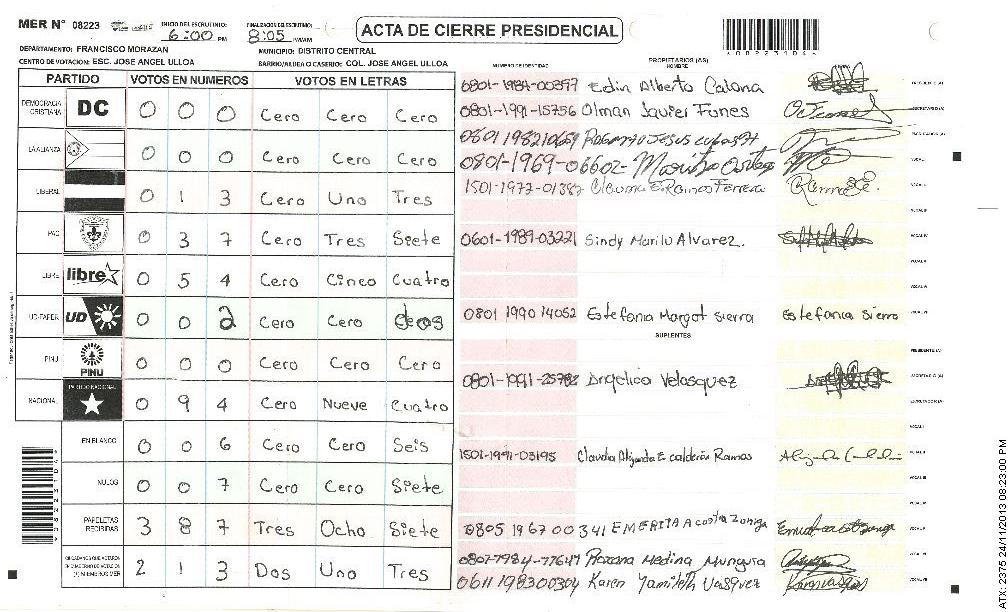 MER Nº 08223
INICIO DEL ESCRUTINIO: 6:00 PM
FINALIZACION DEL ESCRUTINIO: 8:05 PM/AM
ACTA DE CIERRE PRESIDENCIAL
DEPARTAMENTO: FRANCISCO MORAZAN
MUNICIPIO: DISTRITO CENTRAL
CENTRO DE VOTACION: ESC. JOSE ANGEL ULLOA
BARRIO/ALDEA O CASERIO: COL. JOSE ANGEL ULLOA
PARTIDO VOTOS EN NUMEROS VOTOS EN LETRAS
DEMOCRACIA CRISTIANA DC 0 0 0 Cero Cero Cero
LA ALIANZA 0 0 0 Cero Cero Cero
LIBERAL 0 1 3 Cero Uno Tres
PAC 0 3 7 Cero Tres Siete
LIBRE libre 0 5 4 Cero Cinco Cuatro
UD-FAPER UD 0 0 2 Cero Cero dos
PINU PINU 0 0 0 Cero Cero Cero
NACIONAL PARTIDO NACIONAL 0 9 4 Cero Nueve Cuatro
EN BLANCO 0 0 6 Cero Cero Seis
NULOS 0 0 7 Cero Cero Siete
PAPELETAS RECIBIDAS 3 8 7 Tres Ocho Siete
CIUDADANOS QUE VOTARON 2 1 3 Dos Uno Tres
NUMERO DE IDENTIDAD
PROPIETARIOS (AS)
NOMBRE
Edin Alberto
0801-1991-15756 Olman Javier Funes
0801-1969-06602-
1501-1977-01387
0601-1989-03221 Sindy Marilu Alvarez.
0801 1990 14052 Estefania Margot Sierra Estefania Sierra
SUPLENTES
0801-1991- Angelica Velasquez
1501-1991-03195 Claudia E. calderón Ramos
0805 1967 00341 EMERITA Acosta Zuniga
Roxana Medina
0611 198300304 Karen Yamileth Vasquez
ATX: 2375 24/11/2013 08:23:00 PM